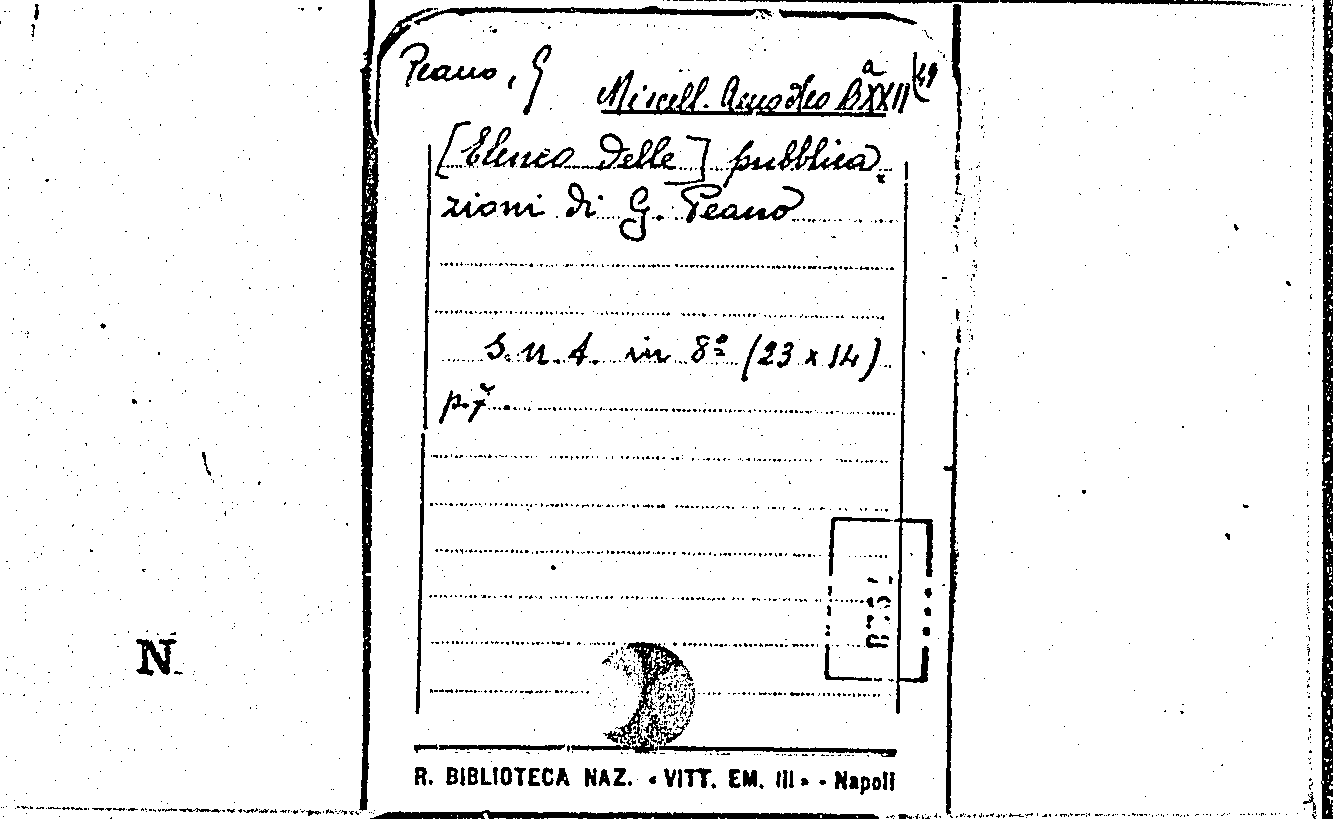 Peano, G
Miscell. Amodeo B XXII a (49
[Elenco delle] pubblica-
zioni di G. Peano
S. n. t. in 8º (23 x 14)
p. 7.
N
R. BIBLIOTECA NAZ. « VITT. EM. III » - Napoli